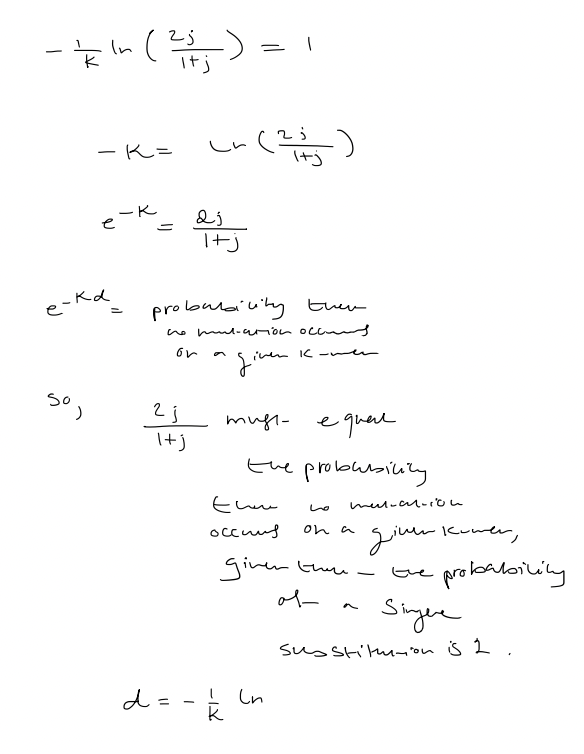 - 1/K ln ( 2j / 1+j ) = 1
- K = ln ( 2j / 1+j )
e^-K = 2j / 1+j
e^-Kd = probability that
no mutation occurs
on a given K-mer
So,
2j / 1+j must equal
the probability
that no mutation
occurs on a given K-mer,
given that the probability
of a single
substitution is 1.
d = - 1/K ln